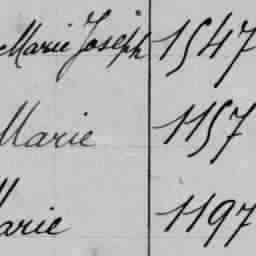 Marie Joseph 1547
Marie 1157
Marie 1197